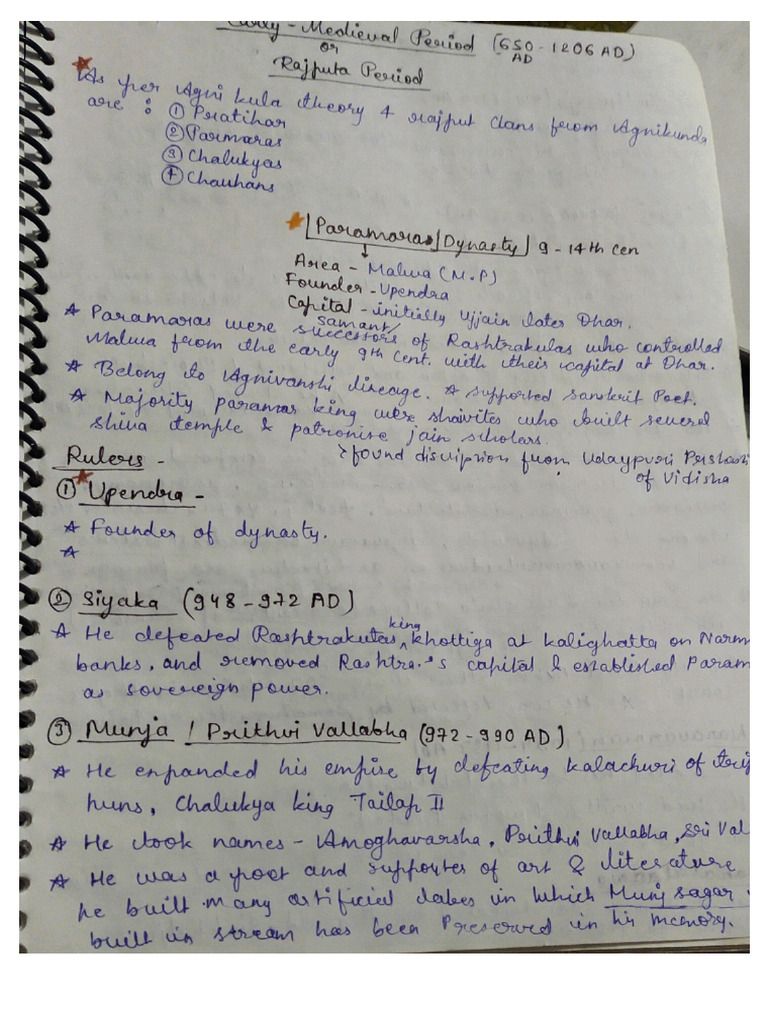 Early-Medieval Period (650-1206 AD)
AD
or
Rajputa Period
As per Agni kula theory 4 rajput clans from Agnikunda
are : ① Pratihar
② Parmaras
③ Chalukyas
④ Chauhans
Paramaras Dynasty 9-14th cen
Area - Malwa (M.P)
Founder - Upendra
Capital - initially Ujjain later Dhar.
samant/
Paramaras were successors of Rashtrakulas who controlled
Malwa from the early 9th cent. with their capital at Dhar.
Belong to Agnivanshi lineage. supported Sanskrit Poet.
Majority paramar king were shaivites who built several
shiva temple & patronise jain scholars.
Rulers -
found discription from Udaypuri Prshasti
of Vidisha
① Upendra -
Founder of dynasty.
② Siyaka (948-972 AD)
king
He defeated Rashtrakutas khottiga at Kalighatta on Narm
banks, and removed Rashtra.'s capital & established Param
as sovereign power.
③ Munja / Prithvi Vallabha (972-990 AD)
He expanded his empire by defeating Kalachuri of
huns, Chalukya king Tailap II
He took names - Amoghavarsha, Prithvi Vallabha, Sri Val
He was a poet and supporter of art & literature
he built many artificial lakes in which Munj sagar
built in stream has been Preserved in his memory.